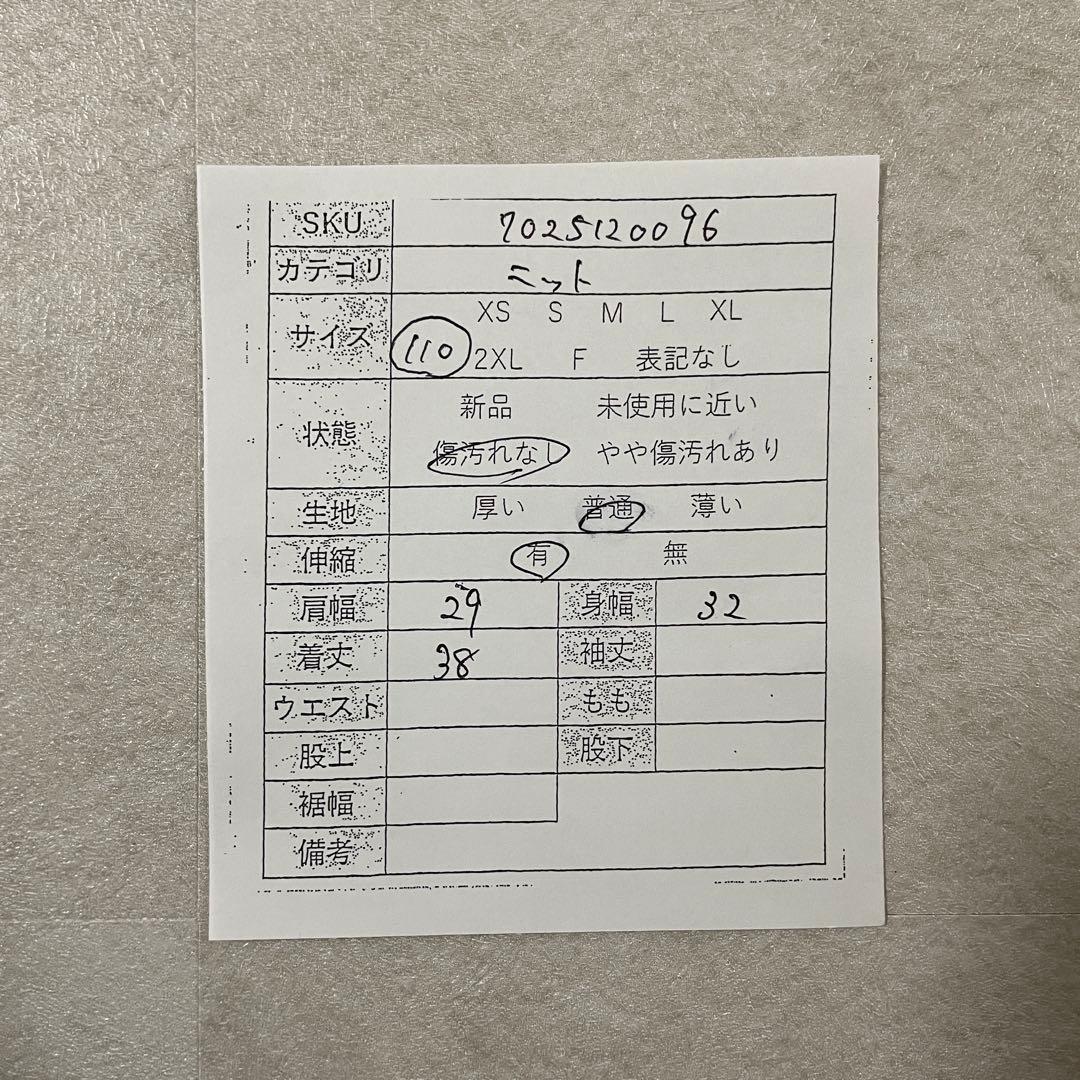 SKU 7025120096
カテゴリ ニット
サイズ XS S M L XL
110 2XL F 表記なし
状態 新品 未使用に近い
傷汚れなし やや傷汚れあり
生地 厚い 普通 薄い
伸縮 有 無
肩幅 29 身幅 32
着丈 38 袖丈
ウエスト もも
股上 股下
裾幅
備考